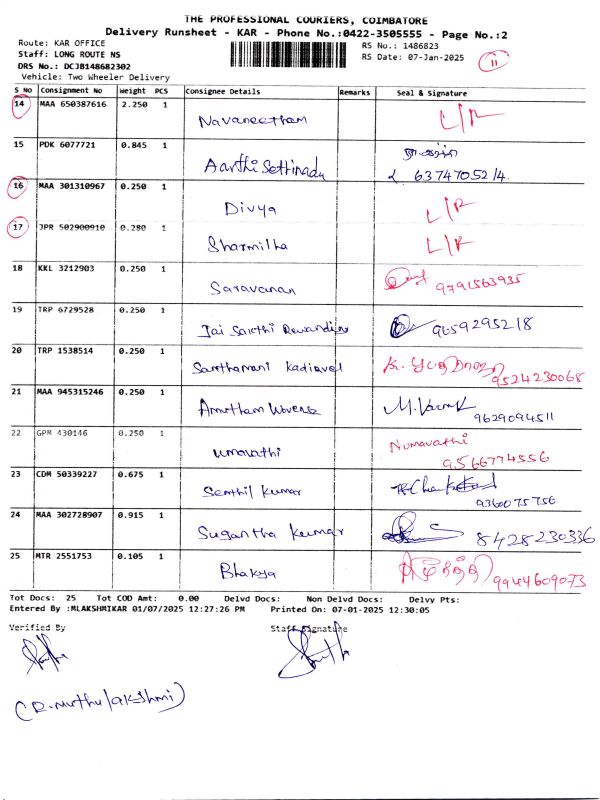 THE PROFESSIONAL COURIERS, COIMBATORE
Delivery Runsheet - KAR - Phone No.:0422-3505555 - Page No.:2
Route: KAR OFFICE RS No.: 1486823
Staff: LONG ROUTE NS RS Date: 07-Jan-2025 11
DRS No.: DCJB148682302
Vehicle: Two Wheeler Delivery
S No Consignment No Weight PCS Consignee Details Remarks Seal & Signature
14 MAA 650387616 2.250 1 Navaneetham L/R
15 PDK 6077721 0.845 1 Aarthi Settinadu 6374705214
16 MAA 301310967 0.250 1 Divya L/R
17 JPR 502900910 0.280 1 Sharmilha L/R
18 KKL 3212903 0.250 1 Saravanan 9791563935
19 TRP 6729528 0.250 1 Jai Sakthi 9659295218
20 TRP 1538514 0.250 1 Santhamani Kadirvel 9524230068
21 MAA 945315246 0.250 1 Amutham 9629094511
22 GPM 430146 0.250 1 umavathi Numavathi 9566774556
23 CDM 50339227 0.675 1 Senthil Kumar 9360075756
24 MAA 302728907 0.915 1 Sugantha Kumar 8428230336
25 MTR 2551753 0.105 1 Bhakya 9944609073
Tot Docs: 25 Tot COD Amt: 0.00 Delvd Docs: Non Delvd Docs: Delvy Pts:
Entered By :MLAKSHMIKAR 01/07/2025 12:27:26 PM Printed On: 07-01-2025 12:30:05
Verified By Staff Signature
(R. Muthulakshmi)